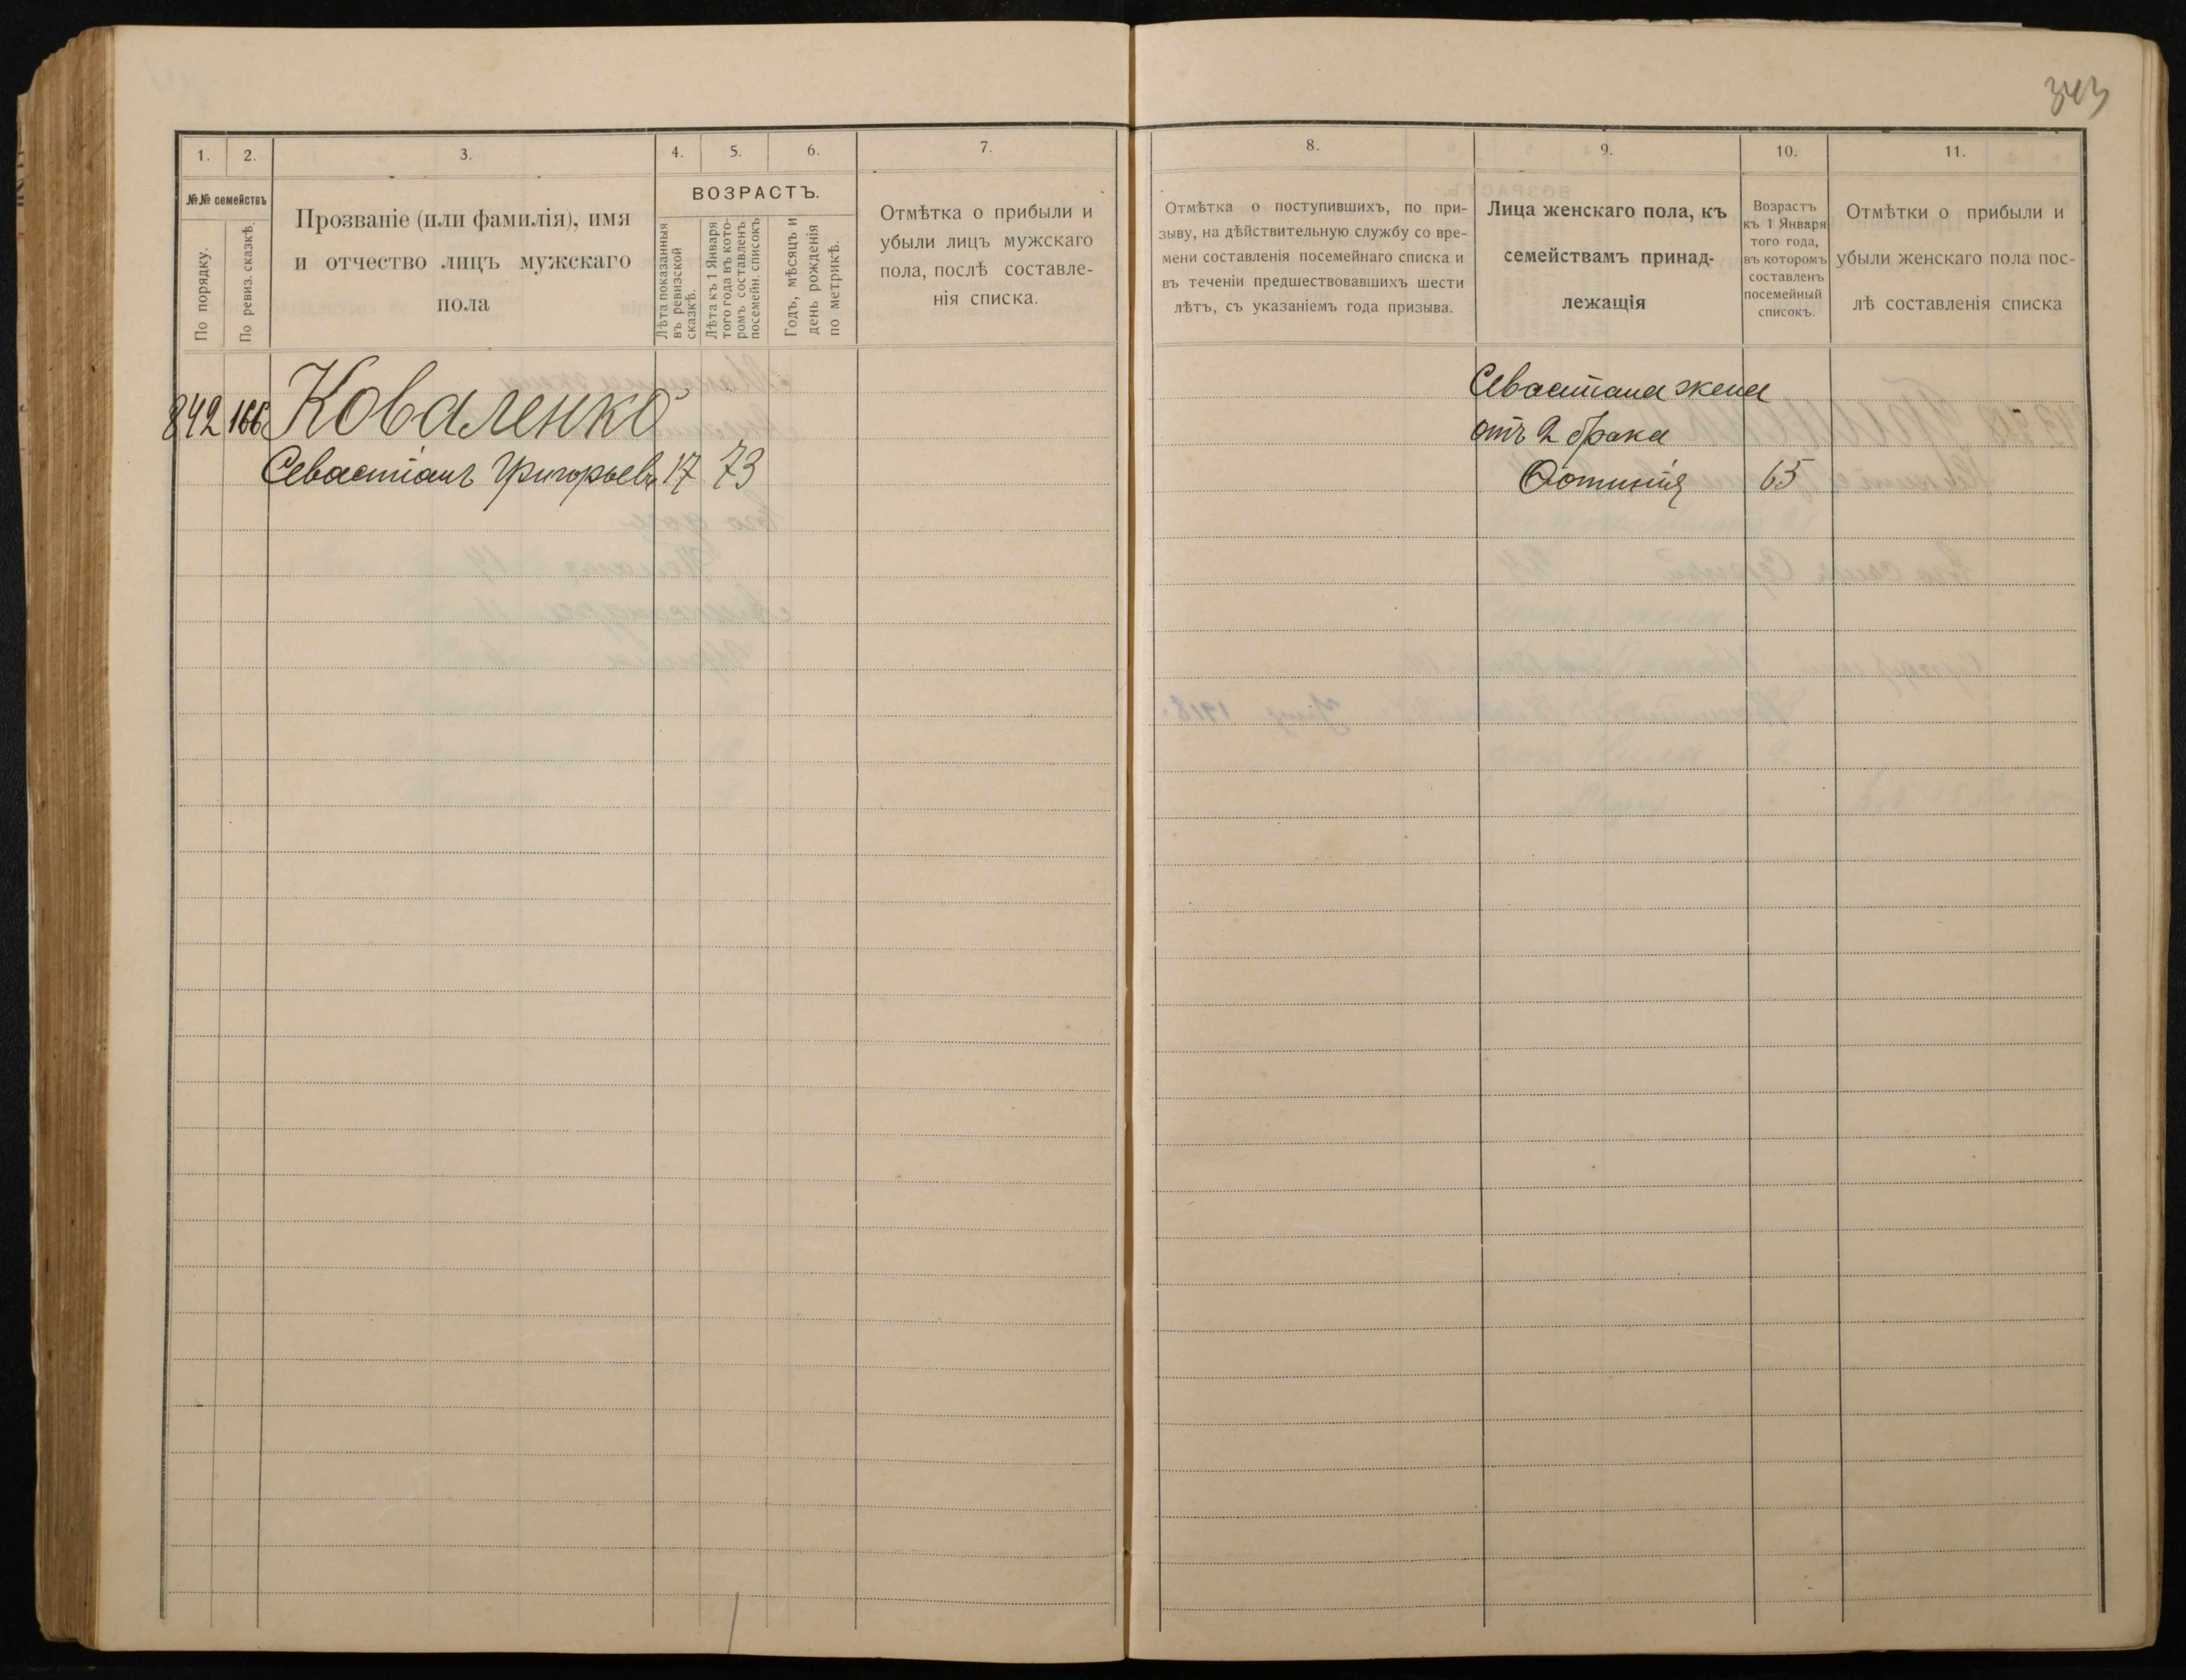 343
1. 2. 3. 4. 5. 6. 7.
№№ семействъ
По порядку.
По ревиз. сказкѣ.
Прозваніе (или фамилія), имя
и отчество лицъ мужскаго
пола
ВОЗРАСТЪ.
Лѣта показанныя
въ ревизской
сказкѣ.
Лѣта къ 1 Января
того года въ кото-
ромъ составленъ
посемейн. списокъ
Годъ, мѣсяцъ и
день рожденія
по метрикѣ.
Отмѣтка о прибыли и
убыли лицъ мужскаго
пола, послѣ составле-
нія списка.
842 166 Коваленко
Севастіанъ Григорьевъ 17 73
8. 9. 10. 11.
Отмѣтка о поступившихъ, по при-
зыву, на дѣйствительную службу со вре-
мени составленія посемейнаго списка и
въ теченіи предшествовавшихъ шести
лѣтъ, съ указаніемъ года призыва.
Лица женскаго пола, къ
семействамъ принад-
лежащія
Возрастъ
къ 1 Января
того года,
въ которомъ
составленъ
посемейный
списокъ.
Отмѣтки о прибыли и
убыли женскаго пола пос-
лѣ составленія списка
Севастіана жена
отъ 2 брака
Фотинія 65